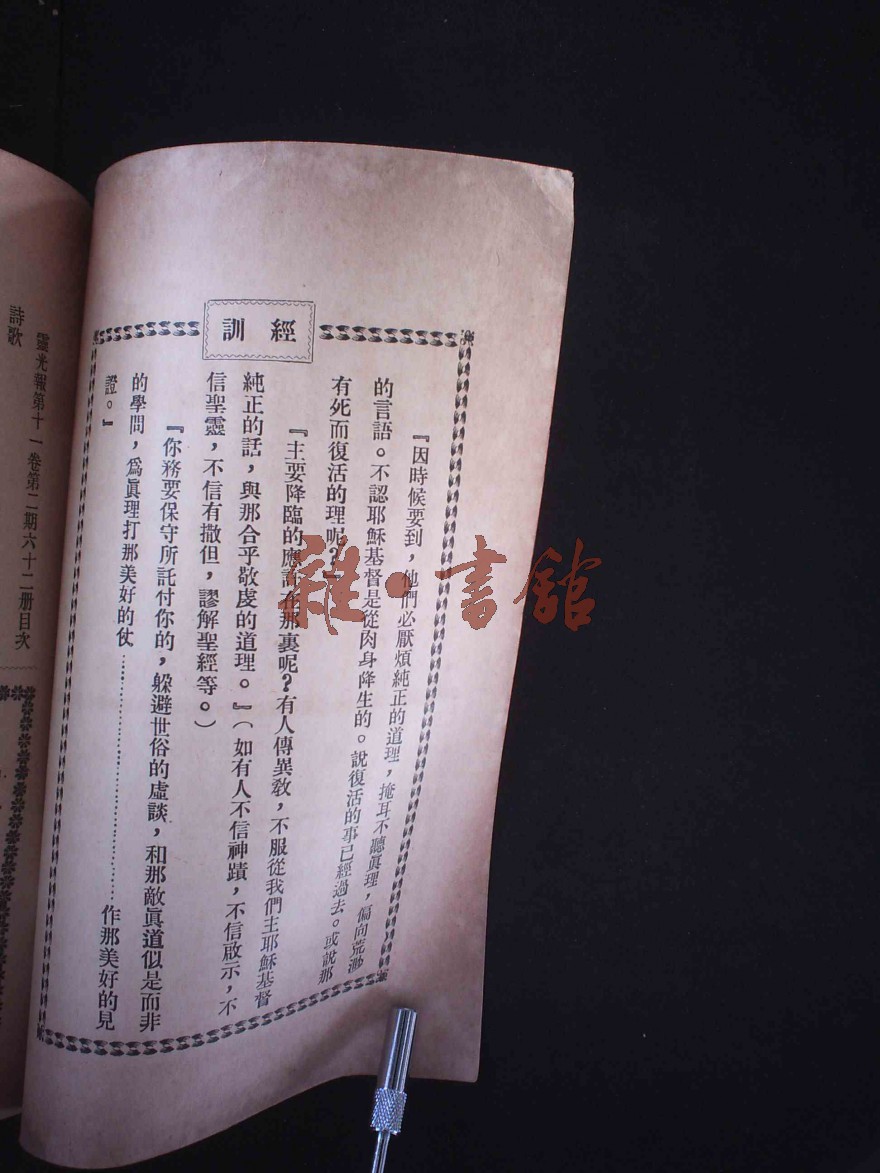 經訓
『因時候要到，他們必厭煩純正的道理，掩耳不聽眞理，偏向荒渺
的言語。不認耶穌基督是從肉身降生的。說復活的事已經過去。或說那
有死而復活的理呢？』
『主要降臨的應許在那裏呢？有人傳異敎，不服從我們主耶穌基督
純正的話，與那合乎敬虔的道理。』（如有人不信神蹟，不信啟示，不
信聖靈，不信有撒但，謬解聖經等。）
『你務要保守所託付你的，躲避世俗的虛談，和那敵眞道似是而非
的學問，爲眞理打那美好的仗……………………作那美好的見
證。』
靈光報第十一卷第二期六十二册目次
詩歌
雜·書館